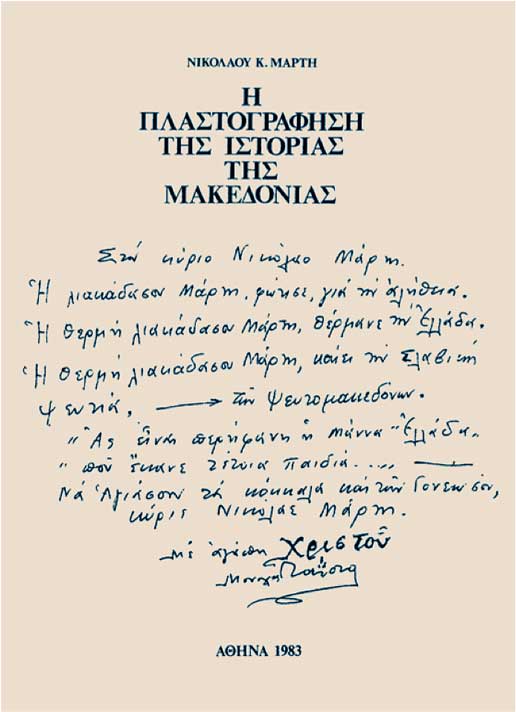 ΝΙΚΟΛΑΟΥ Κ. ΜΑΡΤΗ
Η
ΠΛΑΣΤΟΓΡΑΦΗΣΗ
ΤΗΣ ΙΣΤΟΡΙΑΣ
ΤΗΣ
ΜΑΚΕΔΟΝΙΑΣ
Στόν κύριο Νικόλαο Μάρτη.
Ἡ λιακάδασου Μάρτη, φώτισε, γιά τήν ἀλήθεια.
Ἡ θερμή λιακάδασου Μάρτη, θέρμανε τήν Ἑλλάδα.
Ἡ θερμή λιακάδασου Μάρτη, καίει τήν Σλαβική
ψευτιά, → τῶν ψευτομακεδόνων.
"Ἄς εἶναι περήφανη ἡ μάννα "Ἑλλάδα"
"πού ἔκανε τέτοια παιδιά.....
Νά Ἁγιάσουν τά κόκκαλα καί τῶν Γονέων σου,
κύριε Νικόλαε Μάρτη.
Μέ ἀγάπη Χριστοῦ
Μοναχός Παΐσιος
ΑΘΗΝΑ 1983